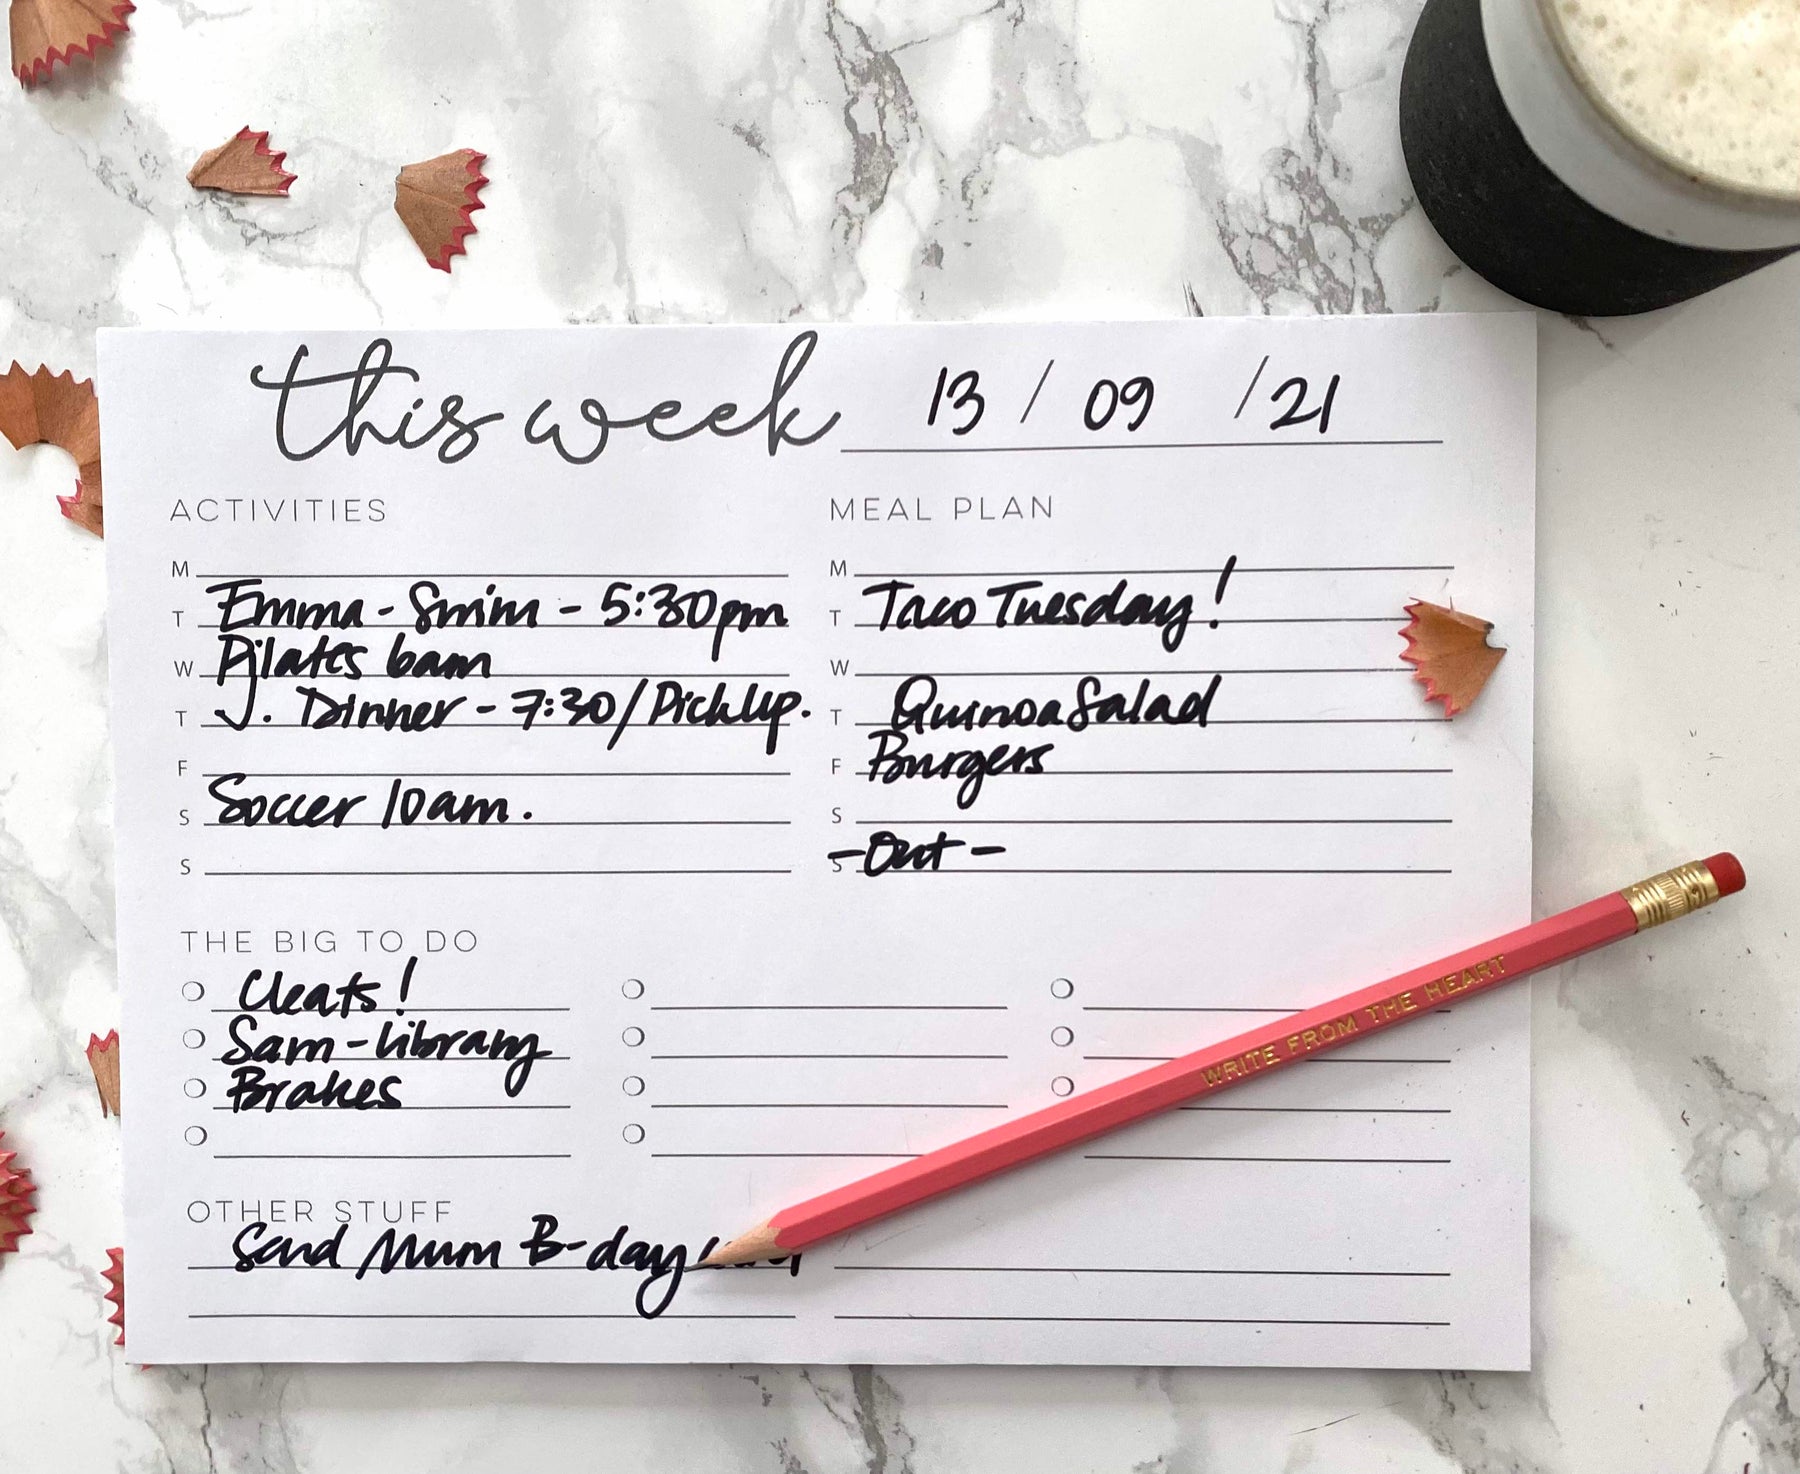 this week 13 / 09 / 21
ACTIVITIES
M
T Emma - Swim - 5:30pm
W Pilates 6am
T J. Dinner - 7:30 / Pick Up.
F
S Soccer 10am.
S
MEAL PLAN
M
T Taco Tuesday!
W
T Quinoa Salad
F Burgers
S
S - Out -
THE BIG TO DO
Cleats!
Sam - library
Brakes
OTHER STUFF
Send Mum B-day
WRITE FROM THE HEART